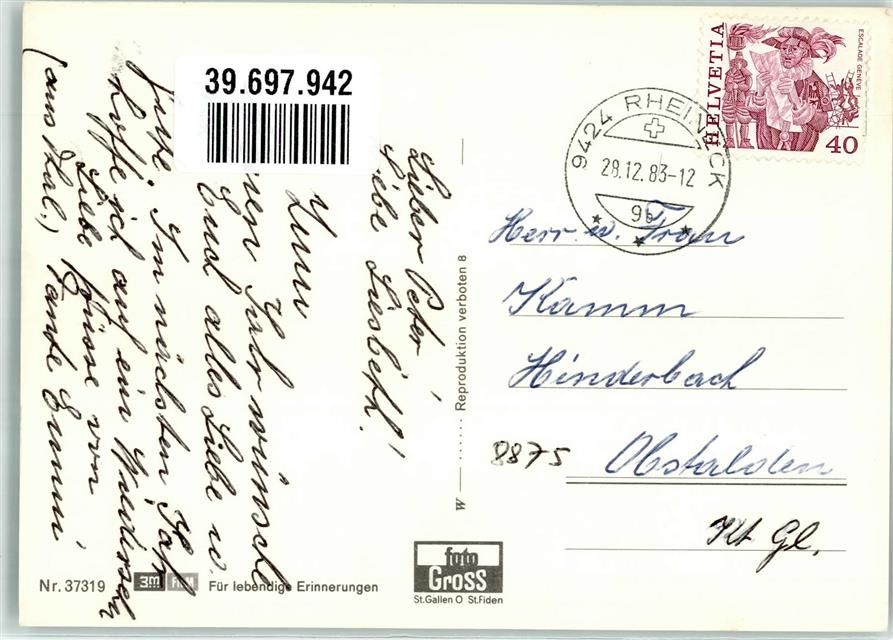 Lieber Peter
Liebe Liesbeth!
Zum
Jahr wünsche
Euch alles Liebe u.
Gute. Im nächsten Jahr
hoffe ich auf ein Wiedersehn
Liebe Grüsse von
(aus Kal.) Tante Emmi
39.697.942
W
Reproduktion verboten 8
HELVETIA
ESCALADE GENÈVE
40
9424 RHEINECK
28.12.83-12
9b
Herr u. Frau
Kamm
Hinderbach
8875 Obstalden
Kt Gl.
Nr. 37319
3M FILM
Für lebendige Erinnerungen
foto
GROSS
St.Gallen O St.Fiden